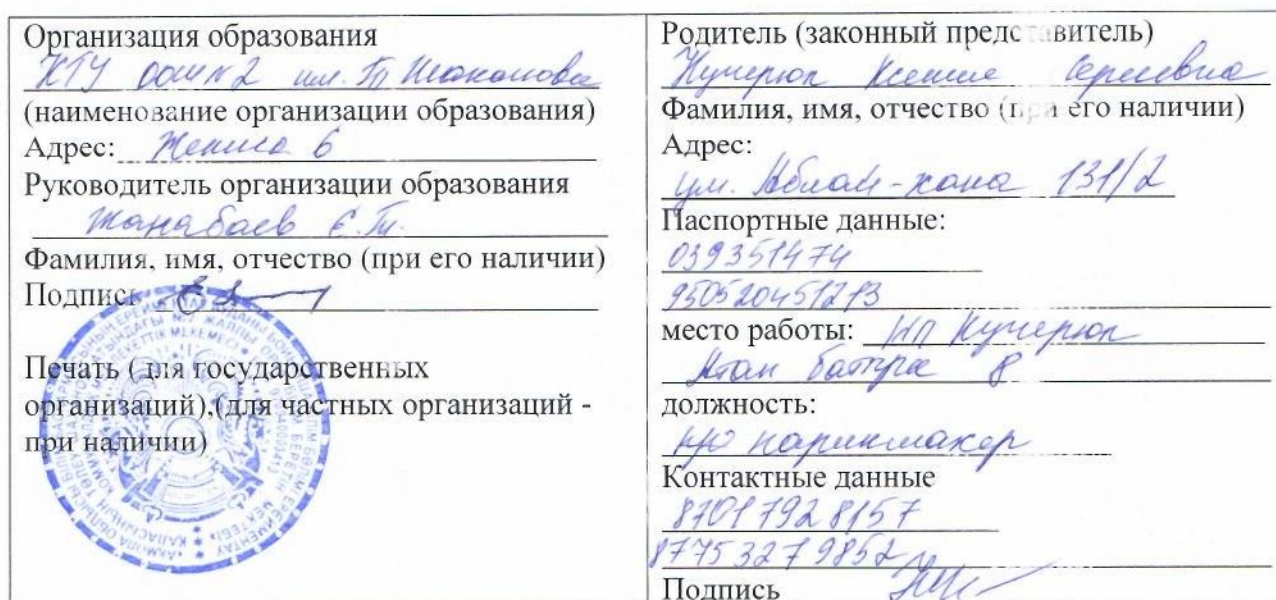 Организация образования
КГУ ОСШ №2 им.
(наименование организации образования)
Адрес: Жениса 6
Руководитель организации образования
Жанабаев Е.Т.
Фамилия, имя, отчество (при его наличии)
Подпись
Печать (для государственных
организаций),(для частных организаций -
при наличии)
Родитель (законный представитель)
Кучерюк Ксения Сергеевна
Фамилия, имя, отчество (при его наличии)
Адрес:
ул. Аблай-хана 131/2
Паспортные данные:
039351474
950520451213
место работы: ИП Кучерюк
Атан батыра 8
должность:
парикмахер
Контактные данные
87017928157
87753279852
Подпись